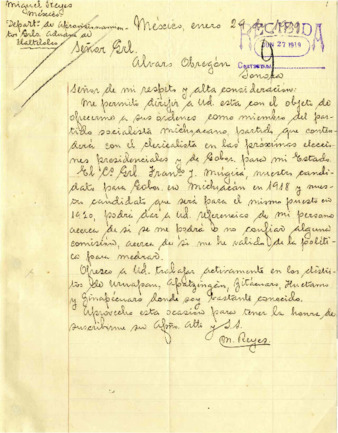 Miguel Reyes
México.
Depar. de
por la Aduana de
México, enero 29
RECIBIDA
JUN 27 1919
Señor Grl.
Alvaro Obregón
Sonora
Señor de mi respeto y alta consideración:
Me permito dirigir a Ud. esta con el objeto de
ofrecerme a sus órdenes como miembro del par-
tido socialista michoacano, partido que conten-
derá con el clericalista en las próximas eleccio-
nes presidenciales y de Gober. para mi Estado.
El C. Grl. Franco. J. Múgica, nuestro candi-
dato para Gober. en Michoacán en 1918 y nues-
tro candidato que será para el mismo puesto en
1920, podrá dar a Ud. referencias de mi persona
acerca de si se me podrá o no confiar alguna
comisión, acerca de si me he valido de la políti-
ca para medrar.
Ofrezco a Ud. trabajar activamente en los distri-
tos de Uruapan, Apatzingán, Zitácuaro, Huetamo
y Zinapécuaro donde soy bastante conocido.
Aprovecho esta ocasión para tener la honra de
suscribirme su Afmo. Atto. y S.S.
M. Reyes